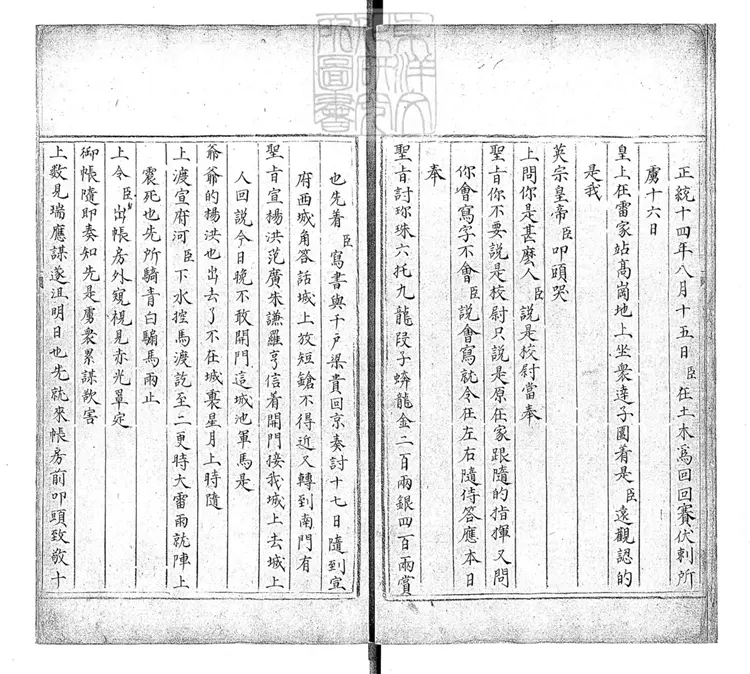 正統十四年八月十五日臣在土木爲回回賽伏剌所
虜十六日
皇上在雷家站髙崗地上坐衆達子圍着是臣遠觀認的
是我
英宗皇帝臣叩頭哭
上問你是甚麽人臣說是校尉當奉
聖旨你不要說是校尉只說是原在家跟隨的指揮又問
你會寫字不會臣說會寫就令在左右隨侍答應本日
奉
聖旨討珎珠六托九龍段子蟒龍金二百兩銀四百兩賞
也先着臣寫書與千戶梁貴回京奏討十七日隨到宣
府西城角答話城上放短鎗不得近又轉到南門有
聖旨宣楊洪范廣朱謙羅亨信着開門接我城上去城上
人回說今日晚不敢開門這城池軍馬是
爺爺的楊洪也出去了不在城裏星月上時隨
上渡宣府河臣下水控馬渡訖至二更時大雷雨就陣上
震死也先所騎青白騸馬雨止
上令臣出帳房外窺視見赤光罩定
御帳隨即奏知先是虜衆累謀欺害
上數見瑞應謀遂沮明日也先就來帳房前叩頭致敬十
東洋文化研究所圖書